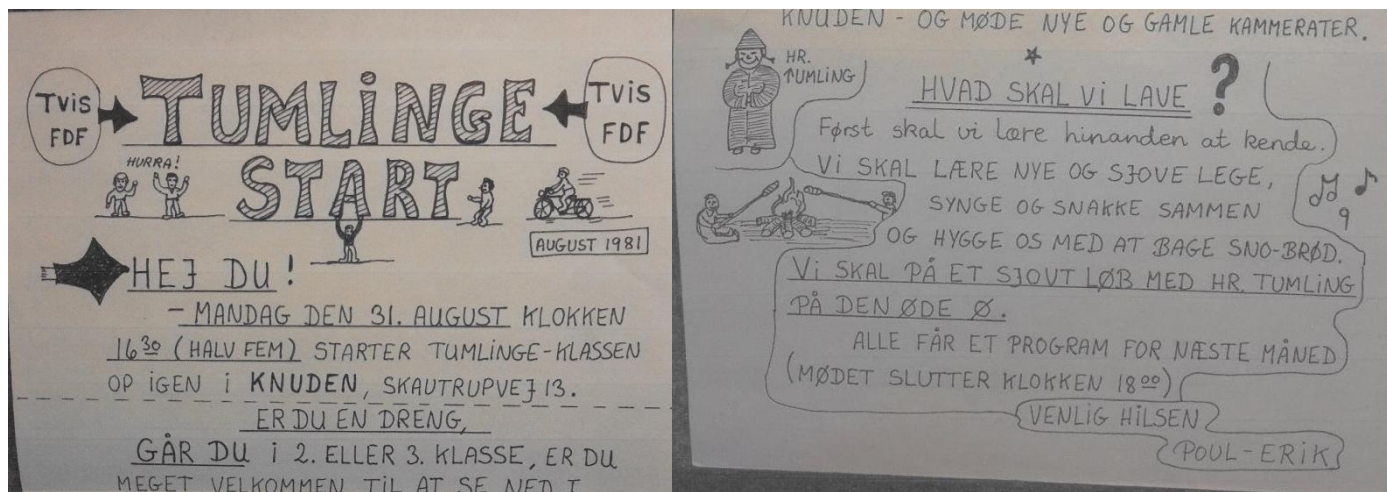 TUMLINGE
TVIS
FDF
TVIS
FDF
HURRA!
START
AUGUST 1981
HEJ DU!
- MANDAG DEN 31. AUGUST KLOKKEN
16 30 (HALV FEM) STARTER TUMLINGE-KLASSEN
OP IGEN I KNUDEN, SKAUTRUPVEJ 13.
ER DU EN DRENG,
GÅR DU I 2. ELLER 3. KLASSE, ER DU
MEGET VELKOMMEN TIL AT SE NED I
KNUDEN - OG MØDE NYE OG GAMLE KAMMERATER.
HR.
TUMLING
HVAD SKAL VI LAVE ?
Først skal vi lære hinanden at kende.
VI SKAL LÆRE NYE OG SJOVE LEGE,
SYNGE OG SNAKKE SAMMEN
OG HYGGE OS MED AT BAGE SNO-BRØD.
VI SKAL PÅ ET SJOVT LØB MED HR. TUMLING
PÅ DEN ØDE Ø.
ALLE FÅR ET PROGRAM FOR NÆSTE MÅNED
(MØDET SLUTTER KLOKKEN 18 00)
VENLIG HILSEN
POUL-ERIK